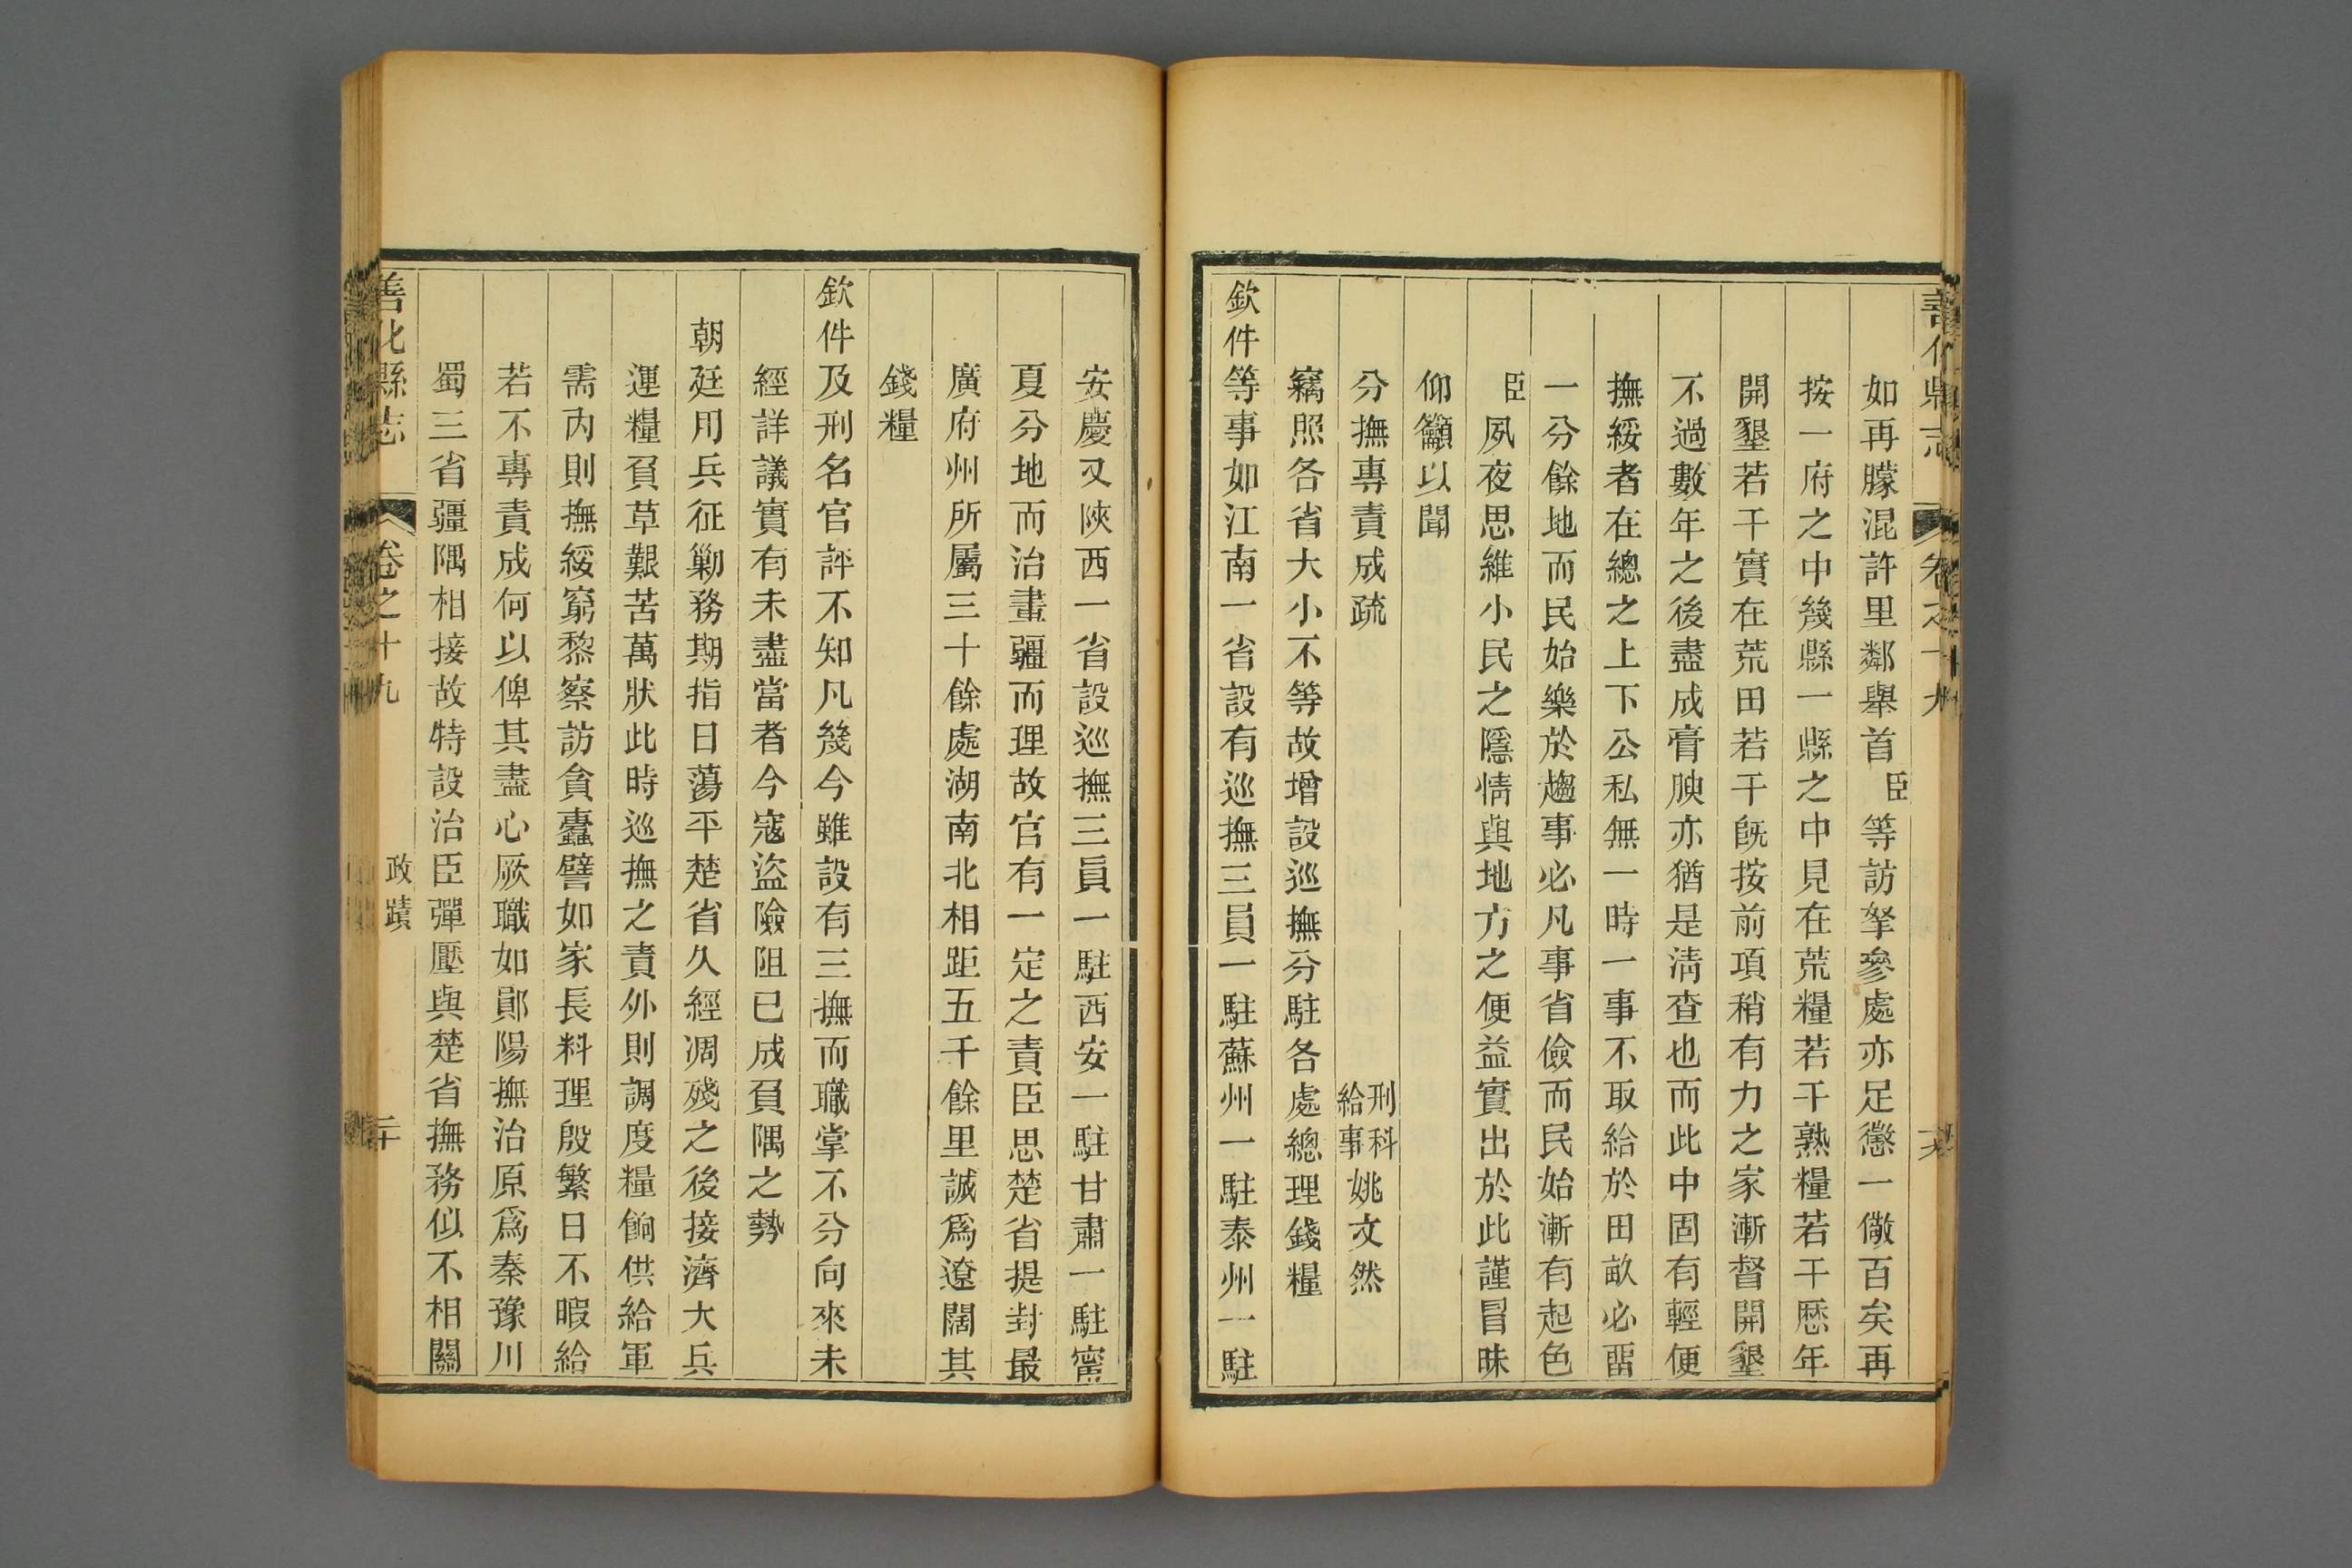 善化縣志 卷之十九
如再朦混許里鄰舉首臣等訪拏參處亦足懲一儆百矣再
按一府之中幾縣一縣之中見在荒糧若干熟糧若干歷年
開墾若干實在荒田若干旣按前項稍有力之家漸督開墾
不過數年之後盡成膏腴亦猶是淸查也而此中固有輕便
撫綏者在總之上下公私無一時一事不取給於田畝必畱
一分餘地而民始樂於趨事必凡事省儉而民始漸有起色
臣夙夜思維小民之隱情與地方之便益實出於此謹冒昧
仰籲以聞
分撫專責成疏 刑科給事姚文然
竊照各省大小不等故增設巡撫分駐各處總理錢糧
欽件等事如江南一省設有巡撫三員一駐蘇州一駐泰州一駐
安慶又陝西一省設巡撫三員一駐西安一駐甘肅一駐甯
夏分地而治畫疆而理故官有一定之責臣思楚省提封最
廣府州所屬三十餘處湖南北相距五千餘里誠爲遼闊其
錢糧
欽件及刑名官評不知凡幾今雖設有三撫而職掌不分向來未
經詳議實有未盡當者今寇盜險阻已成負隅之勢
朝廷用兵征勦務期指日蕩平楚省久經凋殘之後接濟大兵
運糧負草艱苦萬狀此時巡撫之責外則調度糧餉供給軍
需內則撫綏窮黎察訪貪蠹譬如家長料理殷繁日不暇給
若不專責成何以俾其盡心厥職如鄖陽撫治原爲秦豫川
蜀三省疆隅相接故特設治臣彈壓與楚省撫務似不相關
善化縣志 卷之十九 政蹟 二十